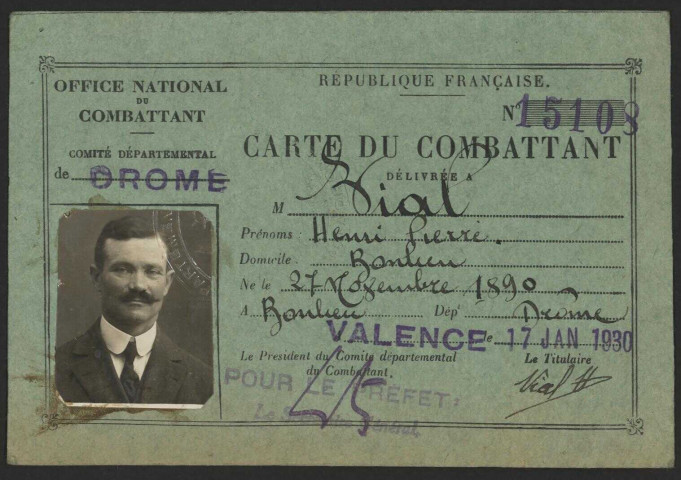 OFFICE NATIONAL
DU
COMBATTANT
COMITÉ DÉPARTEMENTAL
de DROME
RÉPUBLIQUE FRANÇAISE.
N° 15108
CARTE DU COMBATTANT
DÉLIVRÉE A
M Vial
Prénoms : Henri Pierre.
Domicile : Bonlieu
Né le 27 Novembre 1890
A Bonlieu Dépt Drôme
VALENCE le 17 JAN 1930
Le Président du Comité départemental
du Combattant.
Le Titulaire
POUR LE PRÉFET:
Le Secrétaire Général,
Vial H